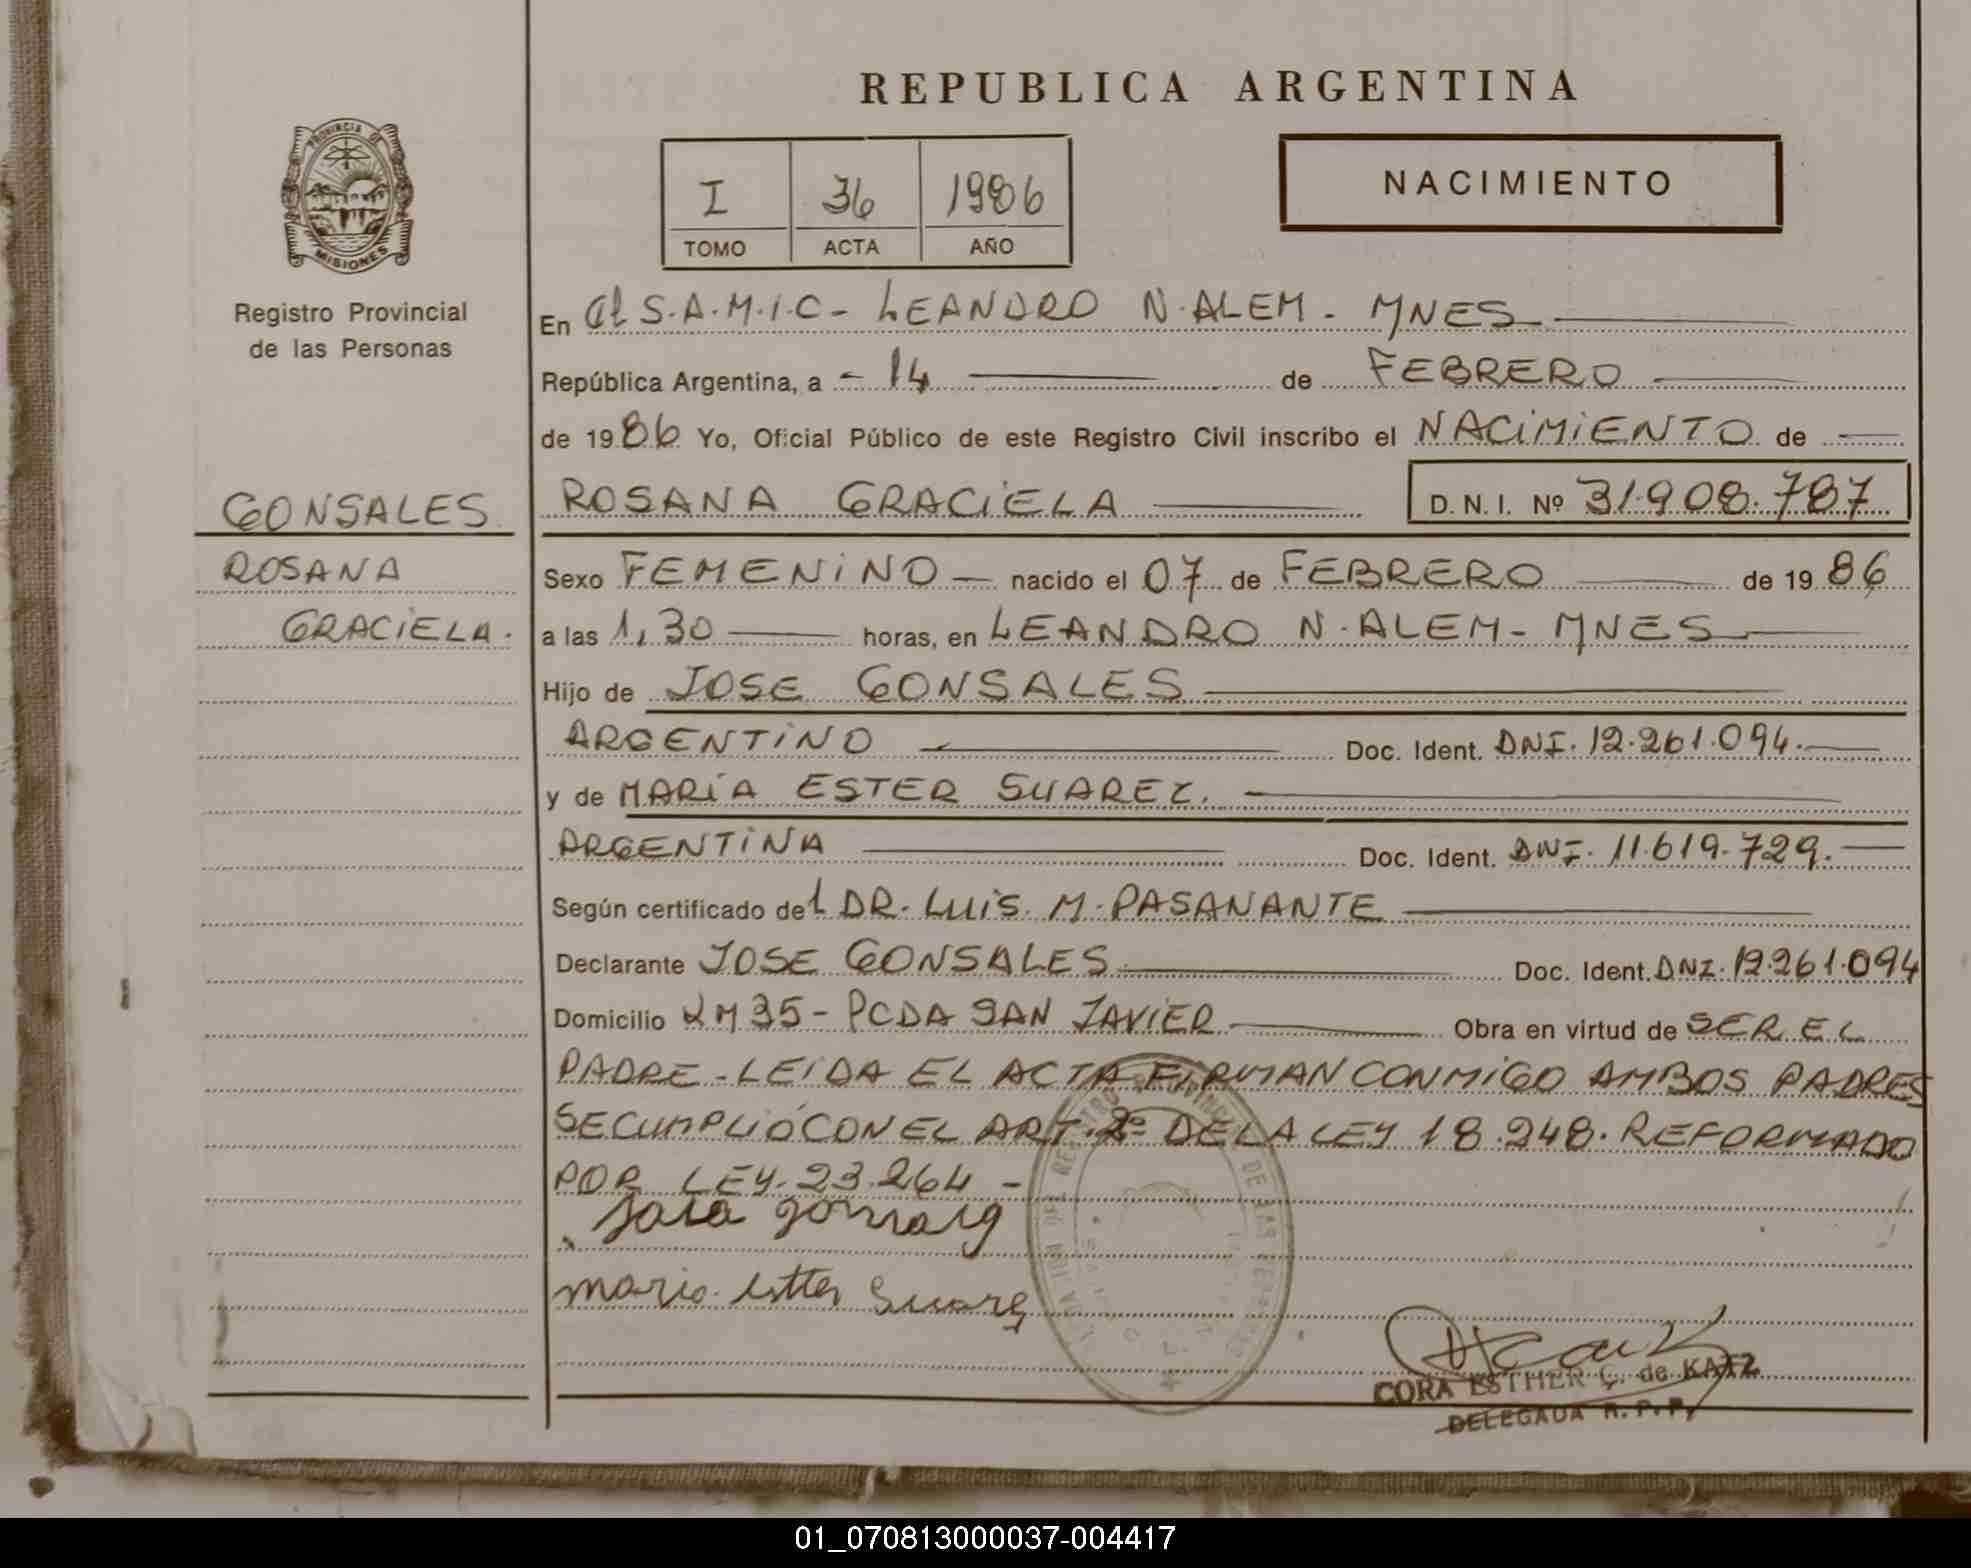 REPUBLICA ARGENTINA
PROVINCIA DE
MISIONES
Registro Provincial
de las Personas
I 36 1986
TOMO ACTA AÑO
NACIMIENTO
En el S.A.M.I.C - LEANDRO N. ALEM - MNES
República Argentina, a - 14 de FEBRERO
de 1986 Yo, Oficial Público de este Registro Civil inscribo el NACIMIENTO de
GONSALES
ROSANA
GRACIELA.
ROSANA GRACIELA D. N. I. Nº 31.908.787
Sexo FEMENINO nacido el 07 de FEBRERO de 1986
a las 1,30 horas, en LEANDRO N. ALEM - MNES
Hijo de JOSE GONSALES
ARGENTINO Doc. Ident. DNI. 12.261.094.
y de MARÍA ESTER SUAREZ.
ARGENTINA Doc. Ident. DNI. 11.619.729.
Según certificado del DR. LUIS. M. PASANANTE
Declarante JOSE GONSALES Doc. Ident. DNI. 12.261.094
Domicilio KM 35 - PCDA SAN JAVIER Obra en virtud de SER EL
PADRE - LEIDA EL ACTA FIRMAN CONMIGO AMBOS PADRES
SE CUMPLIÓ CON EL ART. 2º DE LA LEY 18.248. REFORMADO
POR LEY. 23.264 -
maria ester Suarez
CORA ESTHER C. de KATZ
DELEGADA R. P. P.
01_070813000037-004417